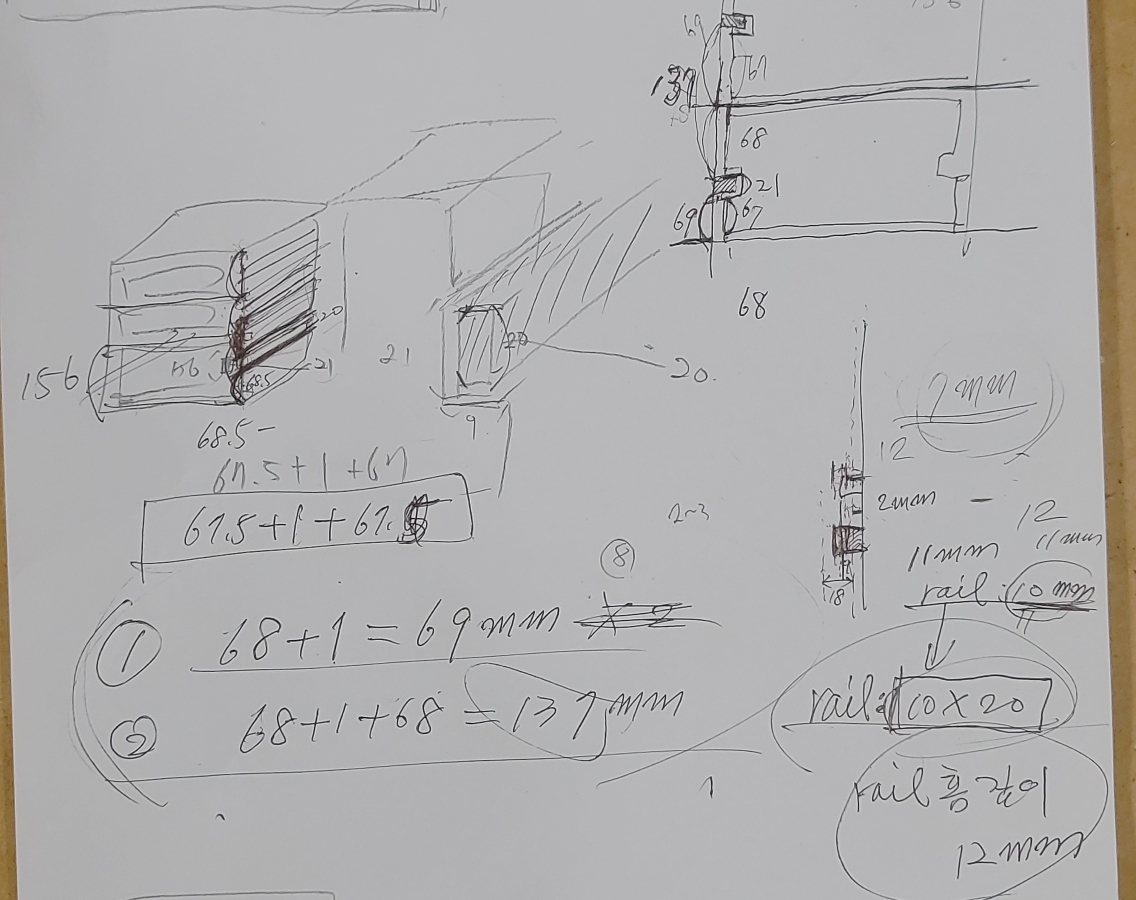 69
67
137
68
21
69
67
68
156
21
20
21
68.5
20.
9
68.5-
67.5+1+67
67.5+1+67.5
7mm
12
2mm
2~3
12
11mm
11mm
rail: 10mm
18
⑧
① 68+1=69mm ×2
② 68+1+68=137mm
rail: 10×20
1
rail홈깊이
12mm